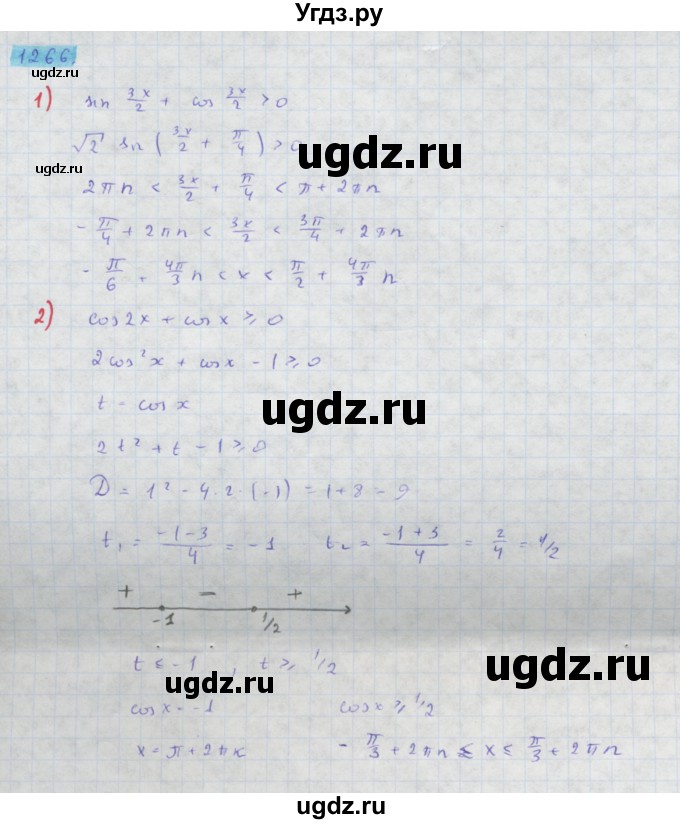 Угдз.ру
1266.
ugdz.ru
1) sin 3x/2 + cos 3x/2 > 0
√2 sin (3x/2 + π/4) > 0
ugdz.ru
ugdz.ru
2πn < 3x/2 + π/4 < π + 2πn
- π/4 + 2πn < 3x/2 < 3π/4 + 2πn
- π/6 + 4π/3 n < x < π/2 + 4π/3 n
2) cos2x + cosx ⩾ 0
ugdz.ru
2cos²x + cosx - 1 ⩾ 0
t = cos x
ugdz.ru
2t² + t - 1 ⩾ 0
D = 1² - 4·2·(-1) = 1+8 = 9
t₁ = (-1-3)/4 = -1 t₂ = (-1+3)/4 = 2/4 = 1/2
+ - +
-1 1/2
t ⩽ -1 , t ⩾ 1/2
ugdz.ru
ugdz.ru
cosx = -1 cosx ⩾ 1/2
x = π + 2πk - π/3 + 2πn ⩽ x ⩽ π/3 + 2πn
ugdz.ru